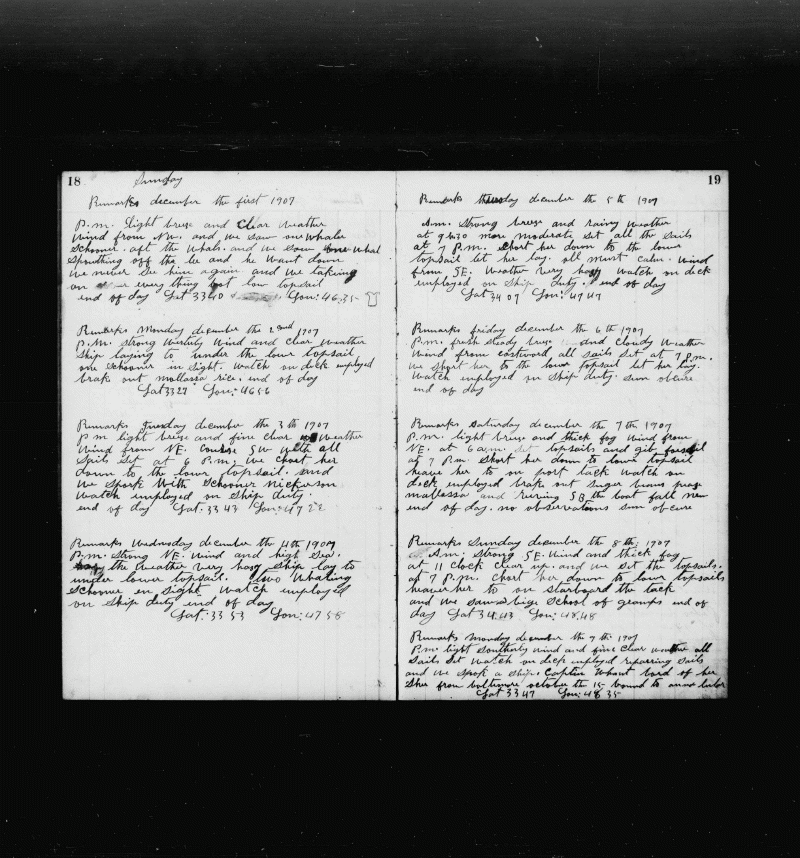 18
Sunday
Remarks december the first 1907
P.m. Light breese and Clear weather
Wind from NW. and we saw one whale
Schooner. aft the whals. and we saw one whal
Spouthing off the lee and he want down
we never see him again and we taking
on every thing bot low topsail
end of day Lat 3340 Lon: 46,35
Remarks Monday december the 2 1907
P.m. strong westerly wind and clear weather
Ship laying to under the lower topsail
one schooner in sight. watch on deck employed
brake out mollassa rice. end of day
Lat 3327 Lon: 4656
Remarks Tuesday december the 3th 1907
Pm light breese and fine clear weather
Wind from NE. Course SW with all
Sails Set at 6 P.m. we Chort her
down to the lower topsail. and
we Spork With Schooner Nickerson
Watch employed on Ship duty.
end of day Lat: 33 43 Lon: 47 22
Remarks Wednusday december the 4th 1907
P.m. Strong NE. Wind and high Sea.
the weather very hasy Ship lay to
under lower topsail. two Whaling
Schooner in Sight Watch employed
on Ship duty end of day
Lat: 33 53 Lon: 47 58
19
Remarks thursday december the 5th 1907
Am. Strong breese and rainy weather
at 9 h 30 more moderate Set all the Sails
at 7 P.m. Short her down to the lower
topsail let her lay. all most calm. Wind
from SE. Weather very hasy Watch on deck
employed on Ship duty. end of day
Lat 34 07 Lon: 4747
Remarks friday december the 6th 1907
P.m. fresh steady brese and cloudy Weather
Wind from eastward all sails Set at 7 P.m.
we Short her to the lower topsail let her lay.
Watch employed on Ship duty. sun obcure
end of day
Remarks Saturday december the 7th 1907
P.m. light breese and thick fog Wind from
NE. at 6 a.m. set topsails and gib
at 7 P.m. Short her down to lower topsail
heave her to on port tack watch on
deck employed brake out Suger beans peas
mallassa and SB. the boat fall new
end of day. no observations sun obcure
Remarks Sunday december the 8th; 1907
Am; Strong SE. Wind and thick fog
at 11 clock clear up. and we Set the topsails.
at 7 P.m. Chort her down to lower topsails
heaver her to on starboard the tack
and we saw a bige School of gramps end of
day Lat 34,43 Lon: 48,48
Remarks Monday december the 9th 1907
P.m. light Southerly wind and fine clear weather all
Sails Set Watch on deck employed reparring Sails
and we Spok a Ship. Captin Whant bord of her
Shee from baltimore october the 15 bound to
Lat 3347 Lon: 48 35